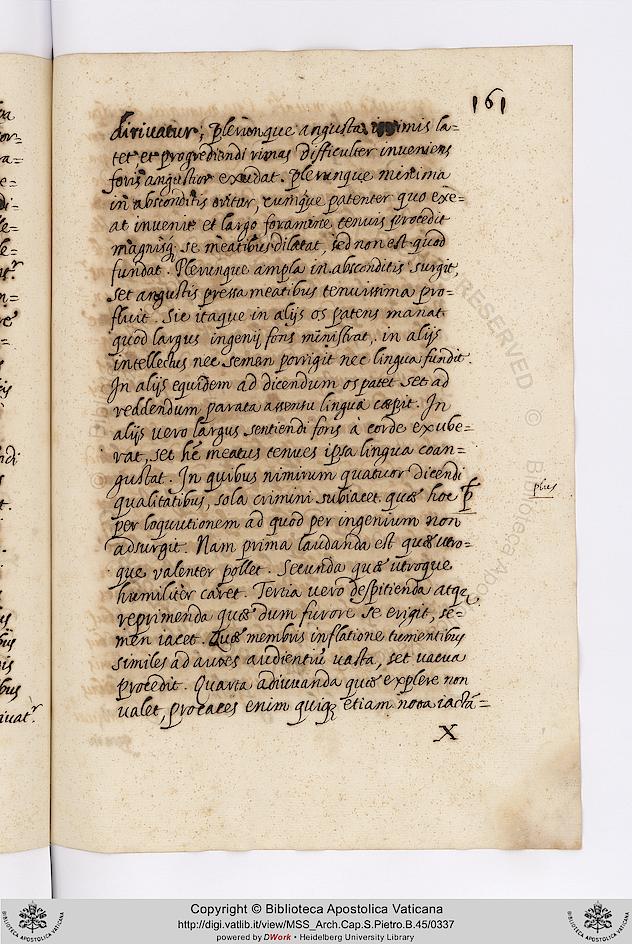 161
diriuatur, Plerunque angusta in imis la=
tet et progrediendi rimas difficulter inueniens
foris angustior exudat. Plerunque minima
in absconditis oritur, cumque patenter quo exe=
at inuenit et largo foramine tenuis procedit
magnisq se meatibus dilatat sed non est quod
fundat. Plerunque ampla in absconditis surgit,
set angustis pressa meatibus tenuissima pro=
fluit. Sic itaque in alijs os patens manat
quod largus ingenij fons ministrat, in alijs
intellectus nec semen porrigit nec lingua fundit.
In alijs equidem ad dicendum os patet set ad
reddendum parata assensu lingua cæpit. In
alijs uero largus sentiendi fons a corde exube=
rat, set hẽ meatus tenues ipsa lingua coan=
gustat. In quibus nimirum quatuor dicendi
qualitatibus, sola crimini subiacet quæ hoc p̄
plius
per loquutionem ad quod per ingenium non
adsurgit. Nam prima laudanda est quæ utro=
que ualenter pollet. Secunda quæ utroque
humiliter caret. Tertia uero despitienda atq
reprimenda quæ dum furore se erigit, se=
men iacet. Quæ membris inflatione tumentibus
similes ad aures audientiũ uasta, set uacua
procedit. Quarta adiuuanda quæ explere non
ualet, procaces enim quiq etiam nota iactã=
X
Copyright © Biblioteca Apostolica Vaticana
http://digi.vatlib.it/view/MSS_Arch.Cap.S.Pietro.B.45/0337
powered by DWork • Heidelberg University Library